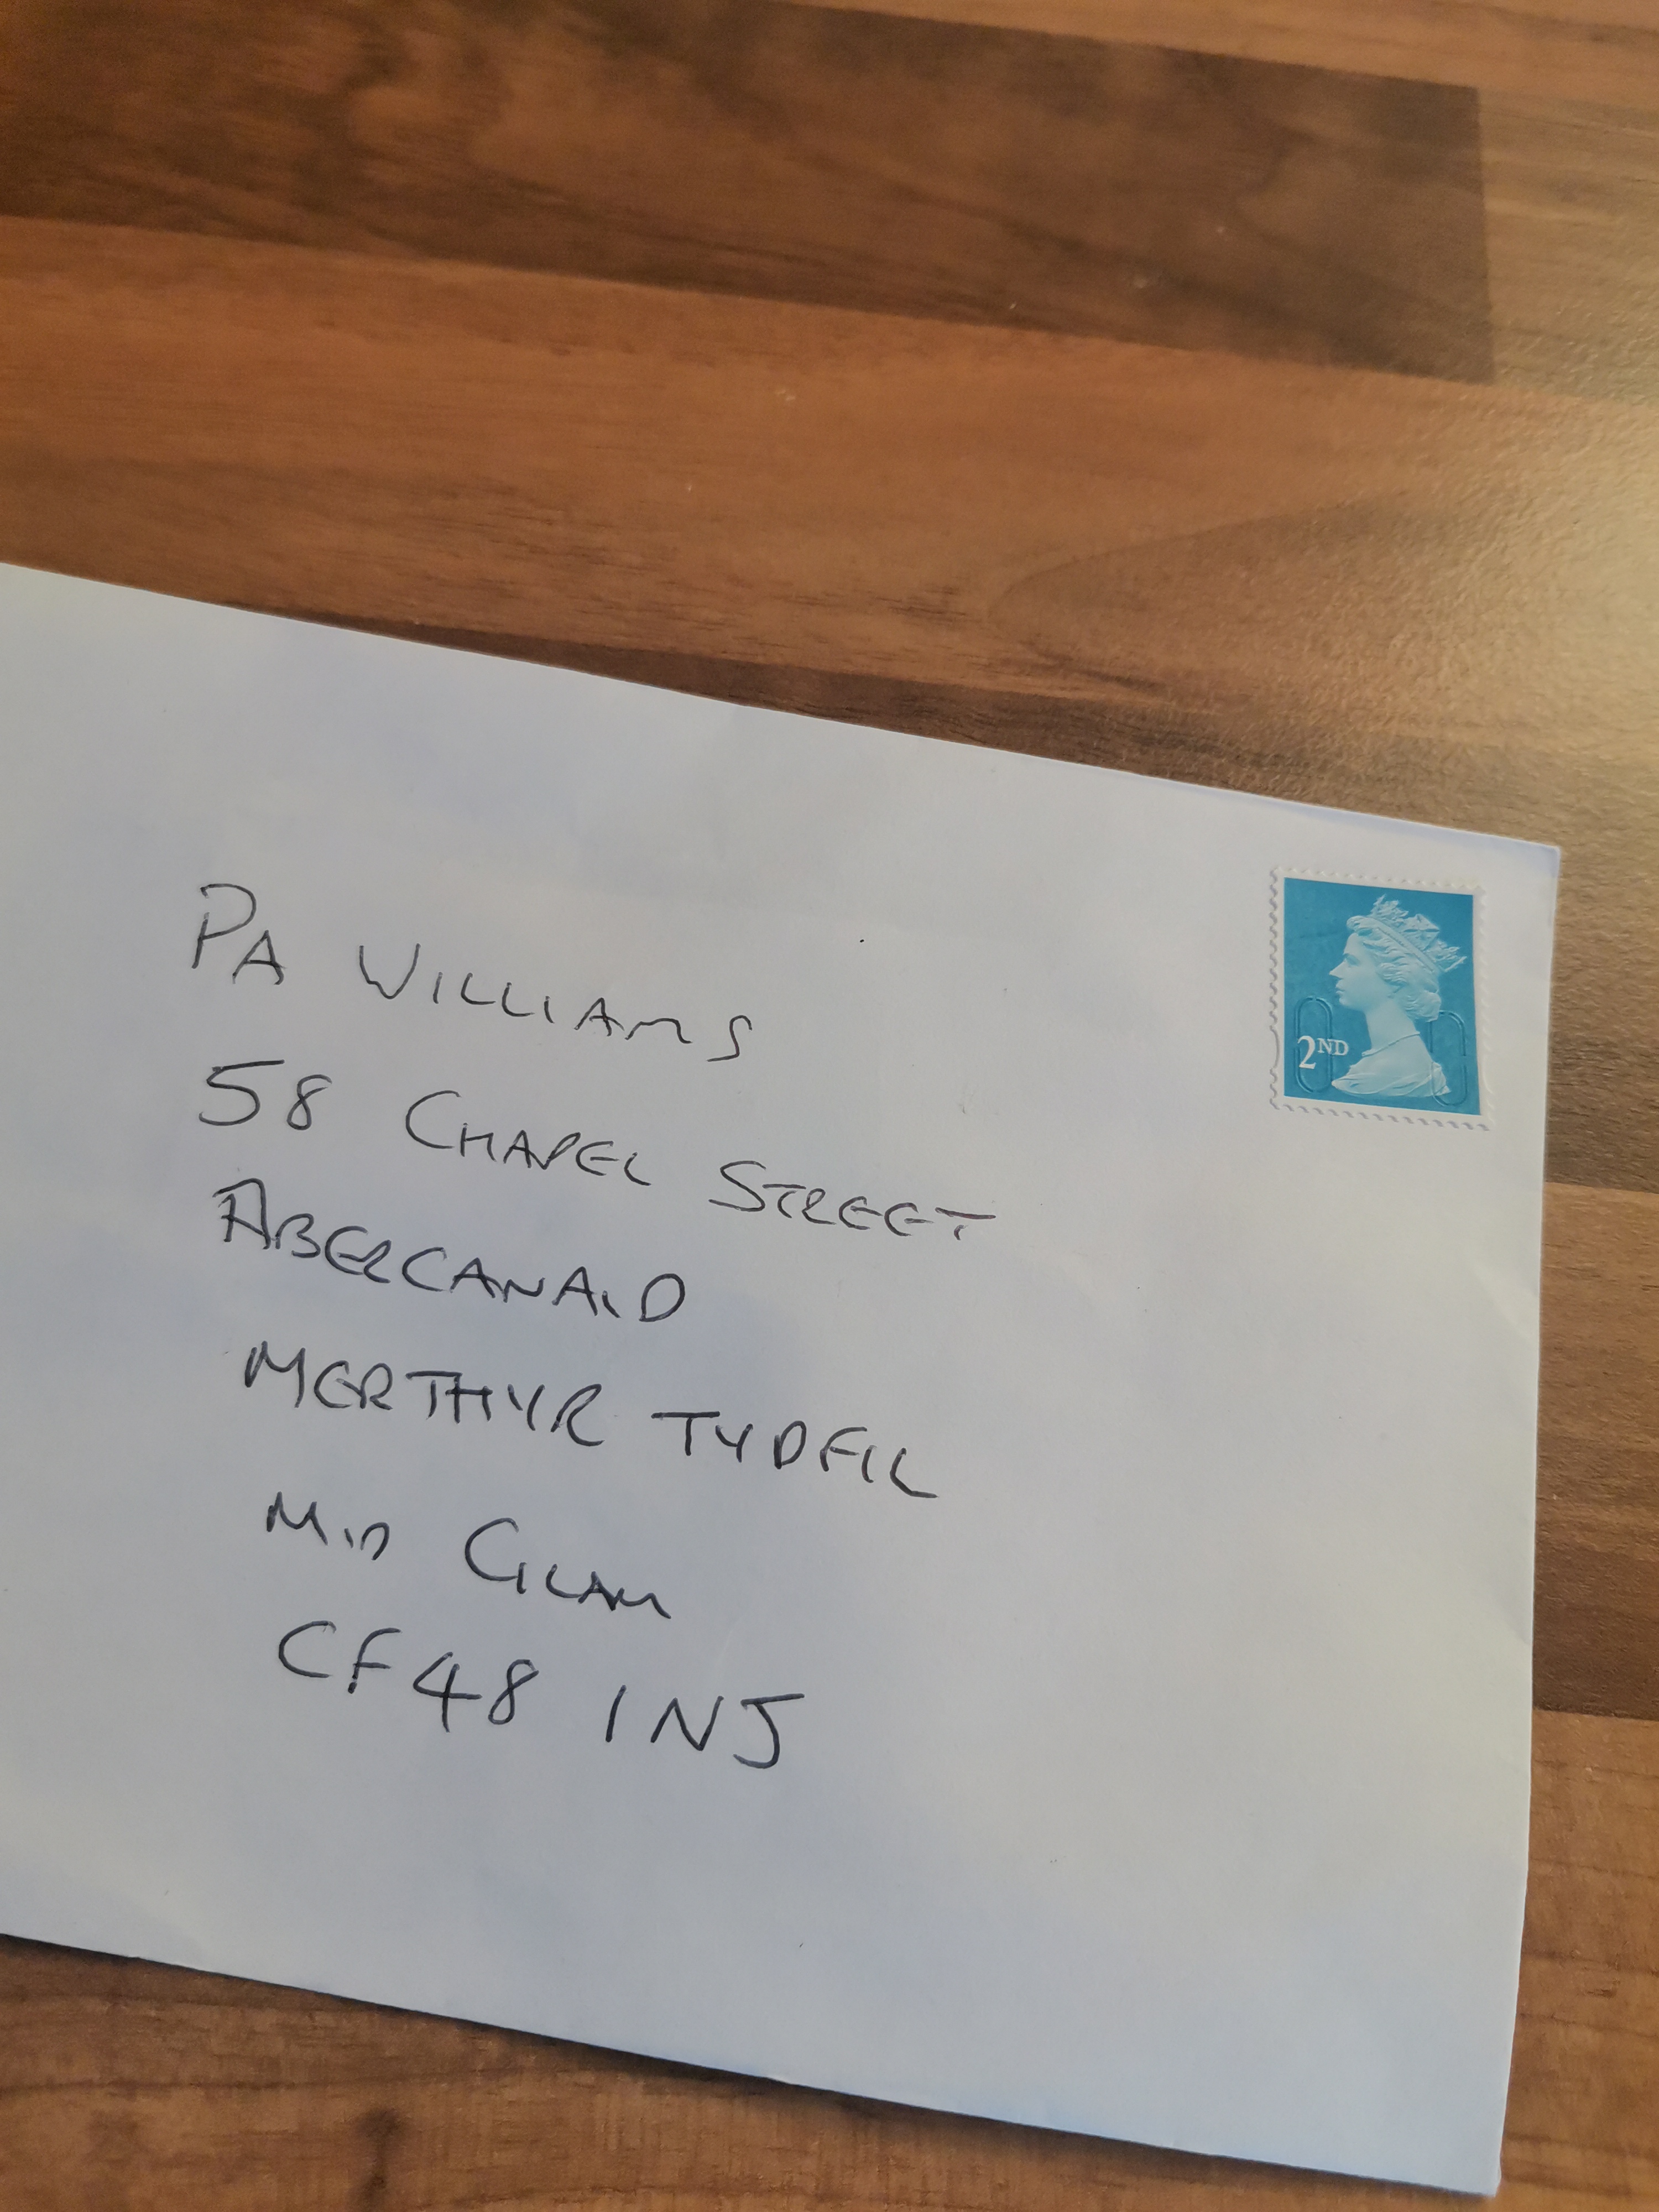 PA WILLIAMS
2ND
58 CHAPEL STREET
ABERCANAID
MERTHYR TYDFIL
MID GLAM
CF48 1NJ